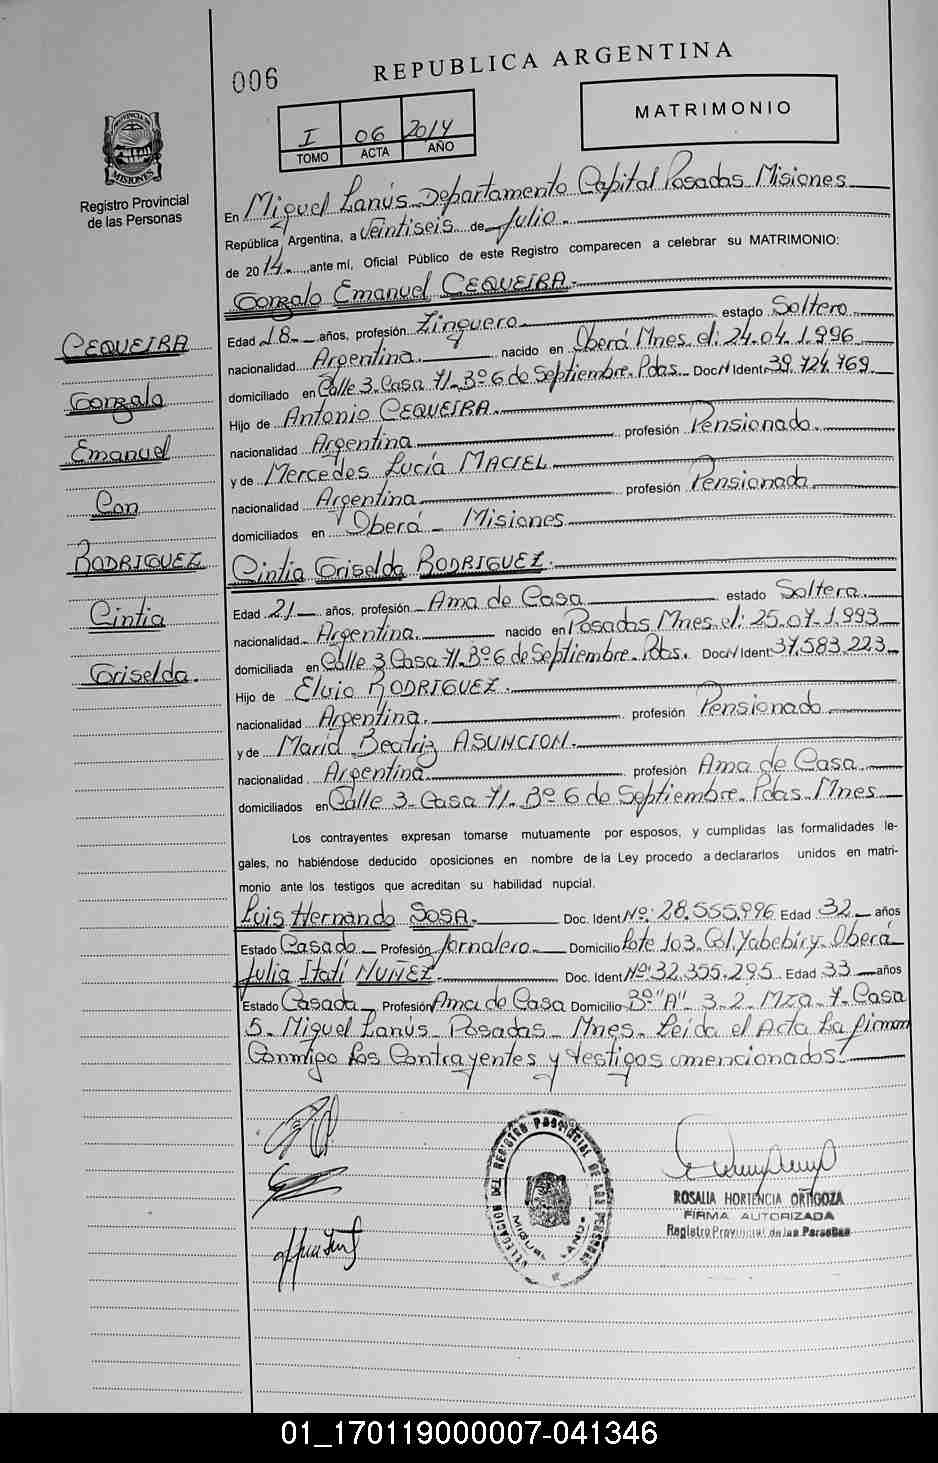 006
REPUBLICA ARGENTINA
MATRIMONIO
I 06 2014
TOMO ACTA AÑO
PROVINCIA DE
MISIONES
Registro Provincial
de las Personas
En Miguel Lanús Departamento Capital Posadas Misiones
República Argentina, a Veintiseis de Julio
de 2014, ante mí, Oficial Público de este Registro comparecen a celebrar su MATRIMONIO:
Gonzalo Emanuel CEQUEIRA.
Edad 18 años, profesión Zinguero estado Soltero
nacionalidad Argentina. nacido en Oberá Mnes. el: 24.04.1.996
domiciliado en Calle 3. Casa 71. Bº 6 de Septiembre. Pdas. Doc. Nº Ident: 39.724.769.
Hijo de Antonio CEQUEIRA.
nacionalidad Argentina profesión Pensionado.
y de Mercedes Lucía MACIEL
nacionalidad Argentina profesión Pensionada
domiciliados en Oberá - Misiones
Cintia Griselda RODRIGUEZ.
Edad 21 años, profesión Ama de Casa estado Soltera.
nacionalidad Argentina. nacido en Posadas Mnes. el: 25.07.1.993
domiciliada en Calle 3 Casa 71. Bº 6 de Septiembre. Pdas. Doc. Nº Ident: 37.583.223
Hijo de Elvio RODRIGUEZ.
nacionalidad Argentina. profesión Pensionado
y de María Beatriz ASUNCION.
nacionalidad Argentina profesión Ama de Casa
domiciliados en Calle 3. Casa 71. Bº 6 de Septiembre. Pdas. Mnes
Los contrayentes expresan tomarse mutuamente por esposos, y cumplidas las formalidades le-
gales, no habiéndose deducido oposiciones en nombre de la Ley procedo a declararlos unidos en matri-
monio ante los testigos que acreditan su habilidad nupcial.
Luis Hernando SOSA. Doc. Ident Nº: 28.555.996 Edad 32 años
Estado Casado Profesión Jornalero Domicilio Lote 103. Col. Yabebiry. Oberá
Julia Itatí NUÑEZ Doc. Ident Nº: 32.355.295 Edad 33 años
Estado Casada Profesión Ama de Casa Domicilio Bº "A" 3-2. Mza. 7. Casa
5. Miguel Lanús. Posadas. Mnes. Leída el Acta La firman
Conmigo Los Contrayentes y testigos mencionados.
CEQUEIRA
Gonzalo
Emanuel
Con
RODRIGUEZ
Cintia
Griselda.
DELEGACION DEL REGISTRO PROVINCIAL DE LAS PERSONAS
MIGUEL LANUS
ROSALIA HORTENCIA ORTIGOZA
FIRMA AUTORIZADA
Registro Provincial de las Personas
01_170119000007-041346